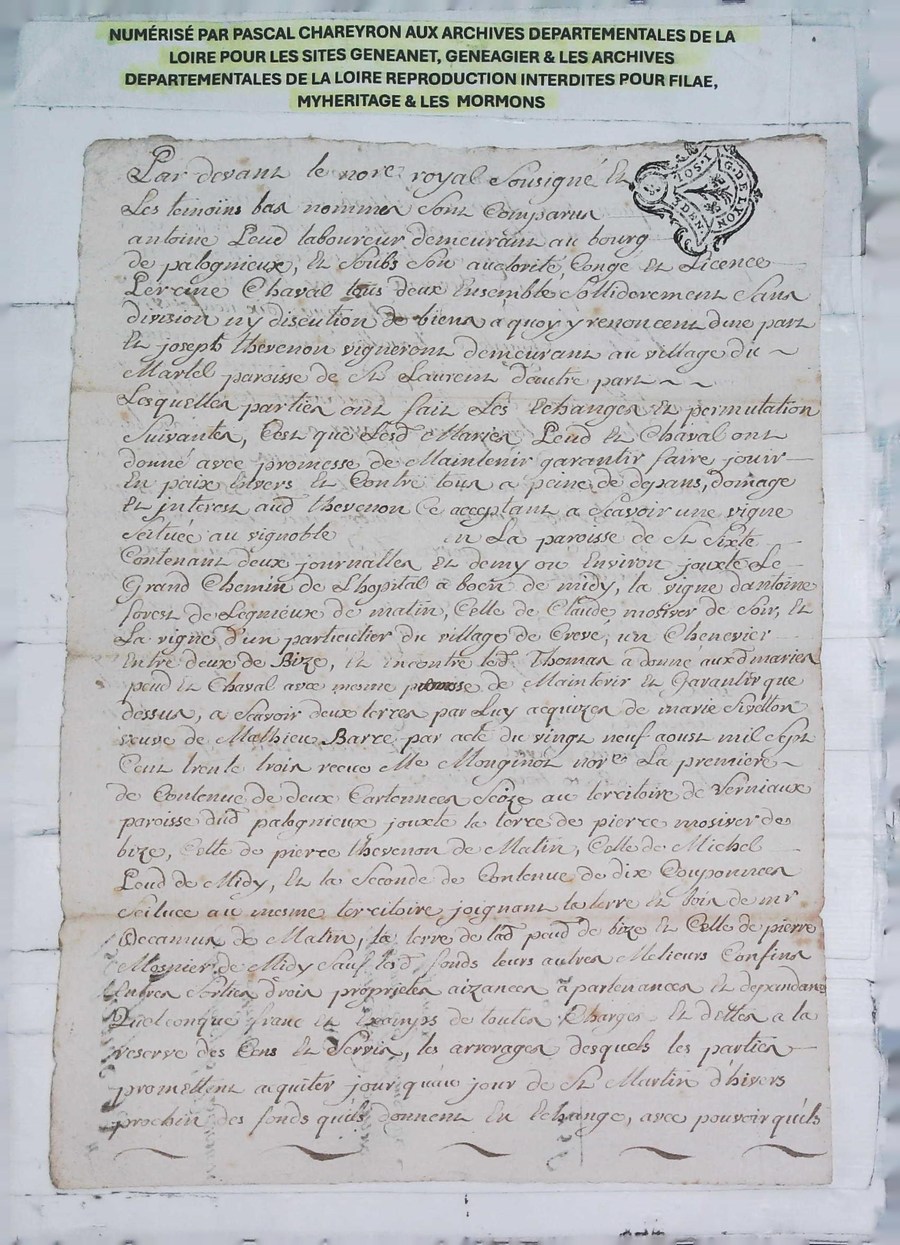 NUMÉRISÉ PAR PASCAL CHAREYRON AUX ARCHIVES DEPARTEMENTALES DE LA
LOIRE POUR LES SITES GENEANET, GENEAGIER & LES ARCHIVES
DEPARTEMENTALES DE LA LOIRE REPRODUCTION INTERDITES POUR FILAE,
MYHERITAGE & LES MORMONS
G. DE LYON
DEN.
Par devant le nore royal sousigné Et
Les temoins bas nommes sont Comparus
antoine Peud laboureur demeurant au bourg
de palognieux, Et soubs son authorité, Congé Et Licence
Perrine Chaval tous deux Ensemble solliderement sans
division ny discution de biens a quoy y renoncent d'une part
Et joseph thevenon vigneront demeurant au village du
Martel paroisse de St Laurent d'autre part
Lesquelles parties ont fait Les Echanges Et permutation
suivantes, C'est que Lesd Maries Peud Et Chaval ont
donné avec promesse de Maintenir garantir faire jouir
En paix Envers Et Contre tous a peine de depans, domage
Et interest aud thevenon Ce acceptant a scavoir une vigne
scituée au vignoble en La paroisse de St Sixte
Contenant deux journalles Et demy ou Environ jouxte Le
Grand Chemin de L'hopital a boën de midy, la vigne d'antoine
forest de Legnieux de matin, Celle de Claude mosnier de soir, Et
La vigne d'un particulier du village de Crevé, un Chenevier
Entre deux de Bize, Et encontre led Thomas a donné aux d maries
peud Et Chaval avec mesme promesse de Maintenir Et Garantir que
dessus, a scavoir deux terres par Luy acquizes de marie
veuve de Mathieu Barre par acte du vingt neuf aoust mil sept
Cent trente trois recue Me Monginot nore La premiere
de Contenue de deux Cartonnees scize au territoire de Verniaux
paroisse dud palognieux jouxte la terre de pierre mosnier de
bize, Celle de pierre thevenon de Matin, Celle de Michel
Peud de Midy, Et la seconde de Contenue de dix Couponnees
scituee au mesme territoire joignant la terre Et bois de mr
Decamus de Matin, la terre de lad peud de bize Et Celle de pierre
Mosnier de Midy sauf fonds leurs autres Melieurs Confins
Entres sorties drois proprietes aizances apartenances Et dependances
Quelconque franc Et Exemps de toutes Charges Et dettes a la
reserve des Cens Et servis, les arrerages desquels les parties
promettent acquiter jour de St Martin d'hivers
prochin des fonds qu'ils donnent En Echange, avec pouvoir qu'ils